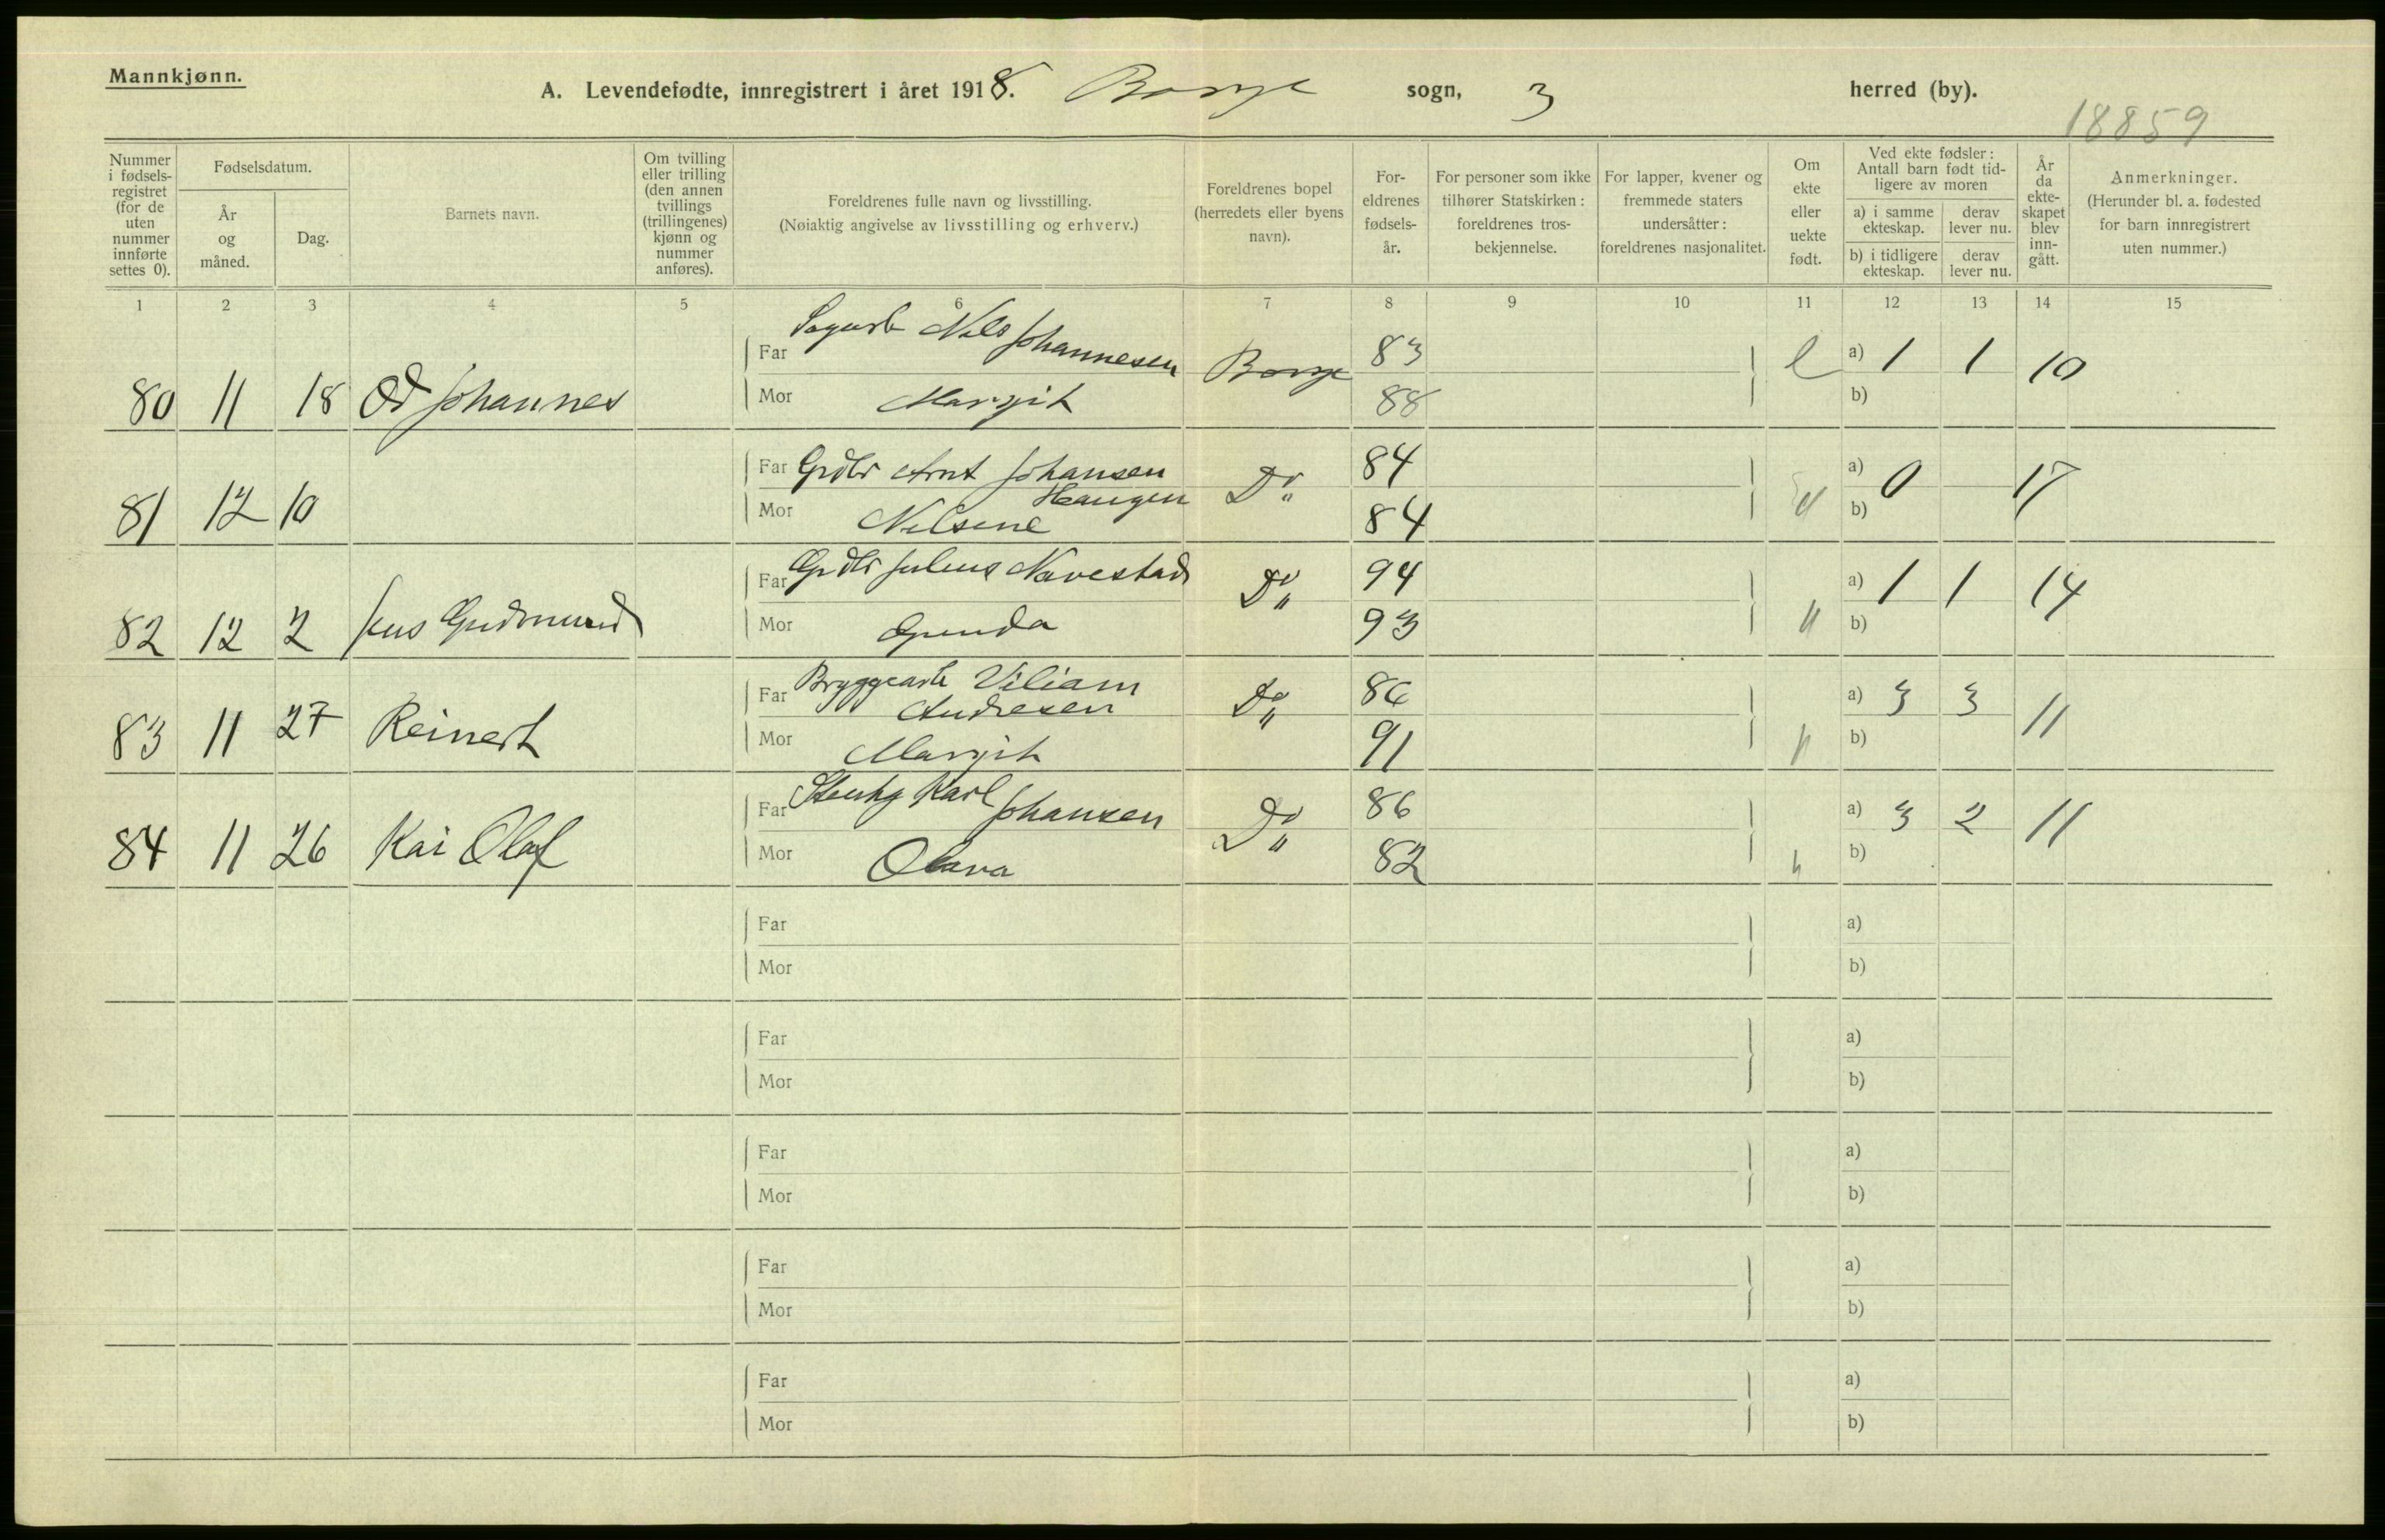 Mannkjønn.
A. Levendefødte, innregistrert i året 1918. Borge sogn, 3 herred (by).
18859
Nummer i fødsels-registret (for de uten nummer innførte settes 0).
Fødselsdatum.
År og måned.
Dag.
Barnets navn.
Om tvilling eller trilling (den annen tvillings (trillingenes) kjønn og nummer anføres).
Foreldrenes fulle navn og livsstilling.
(Nøiaktig angivelse av livsstilling og erhverv.)
Foreldrenes bopel (herredets eller byens navn).
For-eldrenes fødsels-år.
For personer som ikke tilhører Statskirken: foreldrenes tros-bekjennelse.
For lapper, kvener og fremmede staters undersåtter: foreldrenes nasjonalitet.
Om ekte eller uekte født.
Ved ekte fødsler: Antall barn født tid-ligere av moren
a) i samme ekteskap.
derav lever nu.
b) i tidligere ekteskap.
derav lever nu.
År da ekte-skapet blev inn-gått.
Anmerkninger.
(Herunder bl. a. fødested for barn innregistrert uten nummer.)
1 2 3 4 5 6 7 8 9 10 11 12 13 14 15
80 11 18 Od Johannes
Far Sagarb Nils Johannesen Borge 83 e a) 1 1 10
Mor Margit 88 b)
81 12 10
Far Grdbr Arnt Johansen Haugen Do 84 " a) 0 17
Mor Nilsine 84 b)
82 12 2 Jens Gudmund
Far Grdbr Julius Navestad Do 94 " a) 1 1 14
Mor Gunda 93 b)
83 11 27 Reinert
Far Bryggearb Viliam Andresen Do 86 " a) 3 3 11
Mor Margit 91 b)
84 11 26 Kai Olaf
Far Stenhg Karl Johansen Do 86 " a) 3 2 11
Mor Olava 82 b)
Far a)
Mor b)
Far a)
Mor b)
Far a)
Mor b)
Far a)
Mor b)
Far a)
Mor b)